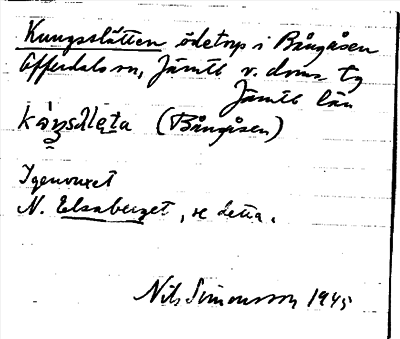 Kungsslåtten ödetorp i Bångåsen
Offerdals sn, Jämtl v. doms. tg
Jämtl län
(Bångåsen)
Igenvuxet
N. Elsaberget, se detta.
Nils Simonsson 1945